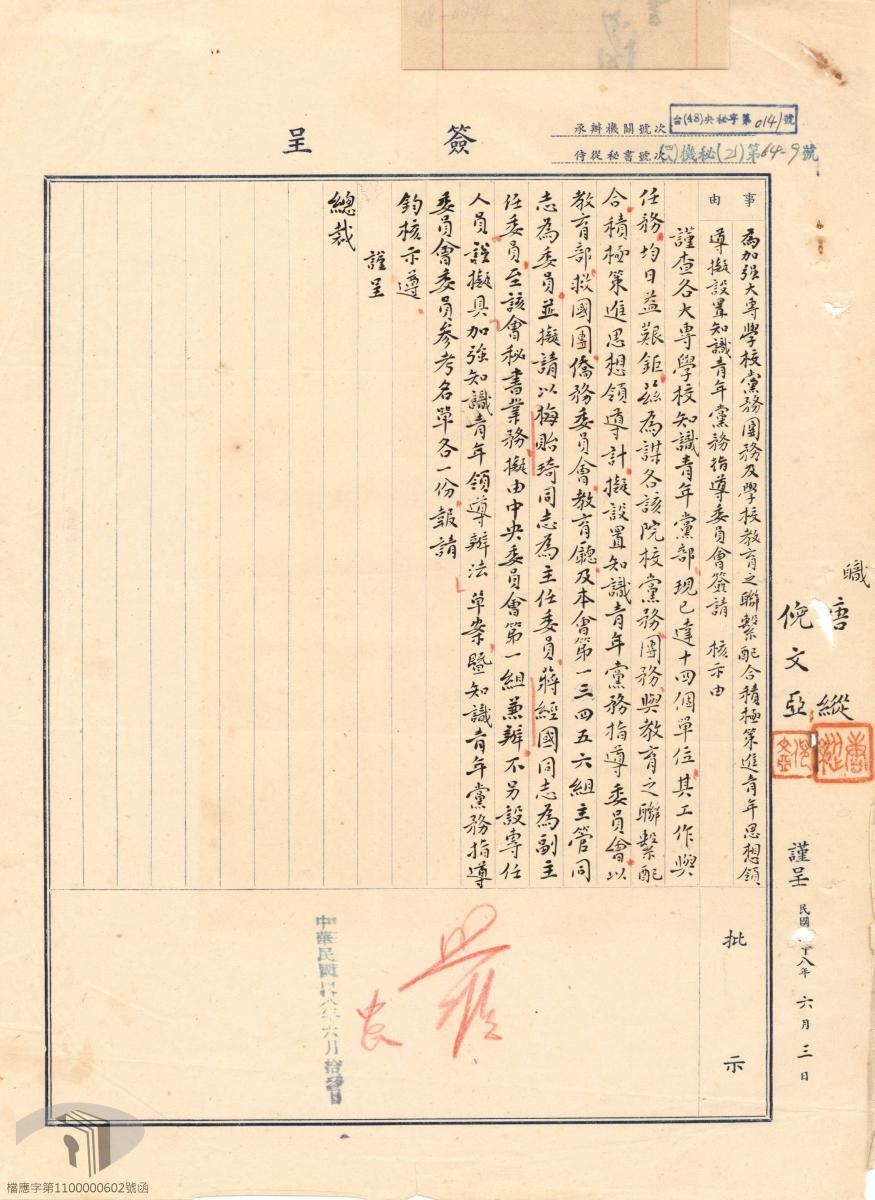 簽呈
承辦機關號次 台(48)央秘字第0141號
侍從秘書號次 機秘(21)第64-9號
事由
為加强大專學校黨務團務及學校教育之聯繫配合積極策進青年思想領
導擬設置知識青年黨務指導委員會簽請 核示由
謹查各大專學校知識青年黨部現已達十四個單位其工作與
任務均日益艱鉅茲為謀各該院校黨務團務與教育之聯繫配
合積極策進思想領導計擬設置知識青年黨務指導委員會以
教育部救國團僑務委員會教育廳及本會第一三四五六組主管同
志為委員並擬請以梅貽琦同志為主任委員蔣經國同志為副主
任委員至該會秘書業務擬由中央委員會第一組兼辦不另設專任
人員謹擬具加強知識青年領導辦法草案暨知識青年黨務指導
委員會委員參考名單各一份報請
鈞核示遵
謹呈
總裁
職 唐縱
倪文亞
謹呈 民國 十八年六月三日
批示
中華民國四八年六月拾
檔應字第1100000602號函